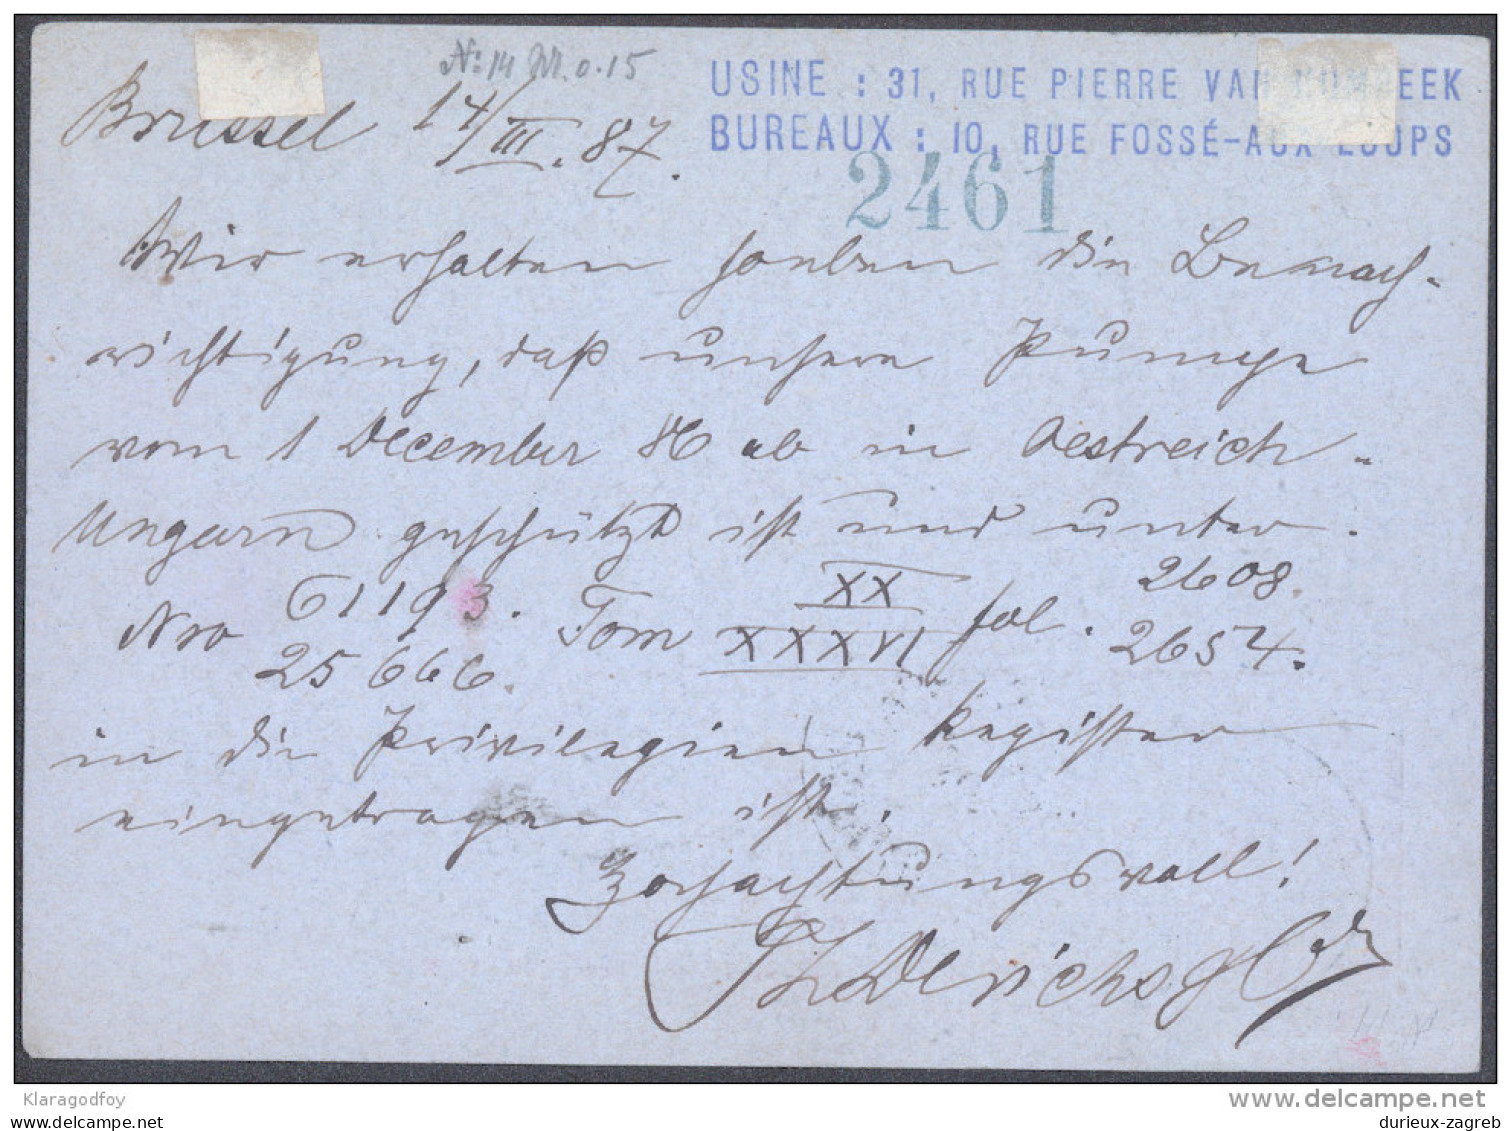 Nº 14 M. 0.15
USINE : 31, RUE PIERRE VAN HUMBEEK
BUREAUX : 10, RUE FOSSÉ-AUX-LOUPS
2461
Brüssel 14/III. 87.
Wir erhalten soeben die Benach-
richtigung, daß unsere Pumpe
vom 1 December 86 ab in Oestreich-
Ungarn geschützt ist und unter
Nro 61193. Tom XX fol. 2608.
25666. XXXVI 2654.
in die Privilegien Register
eingetragen ist.
Hochachtungsvoll!
Derichs
Klaragodfoy
delcampe.net
durieux-zagreb